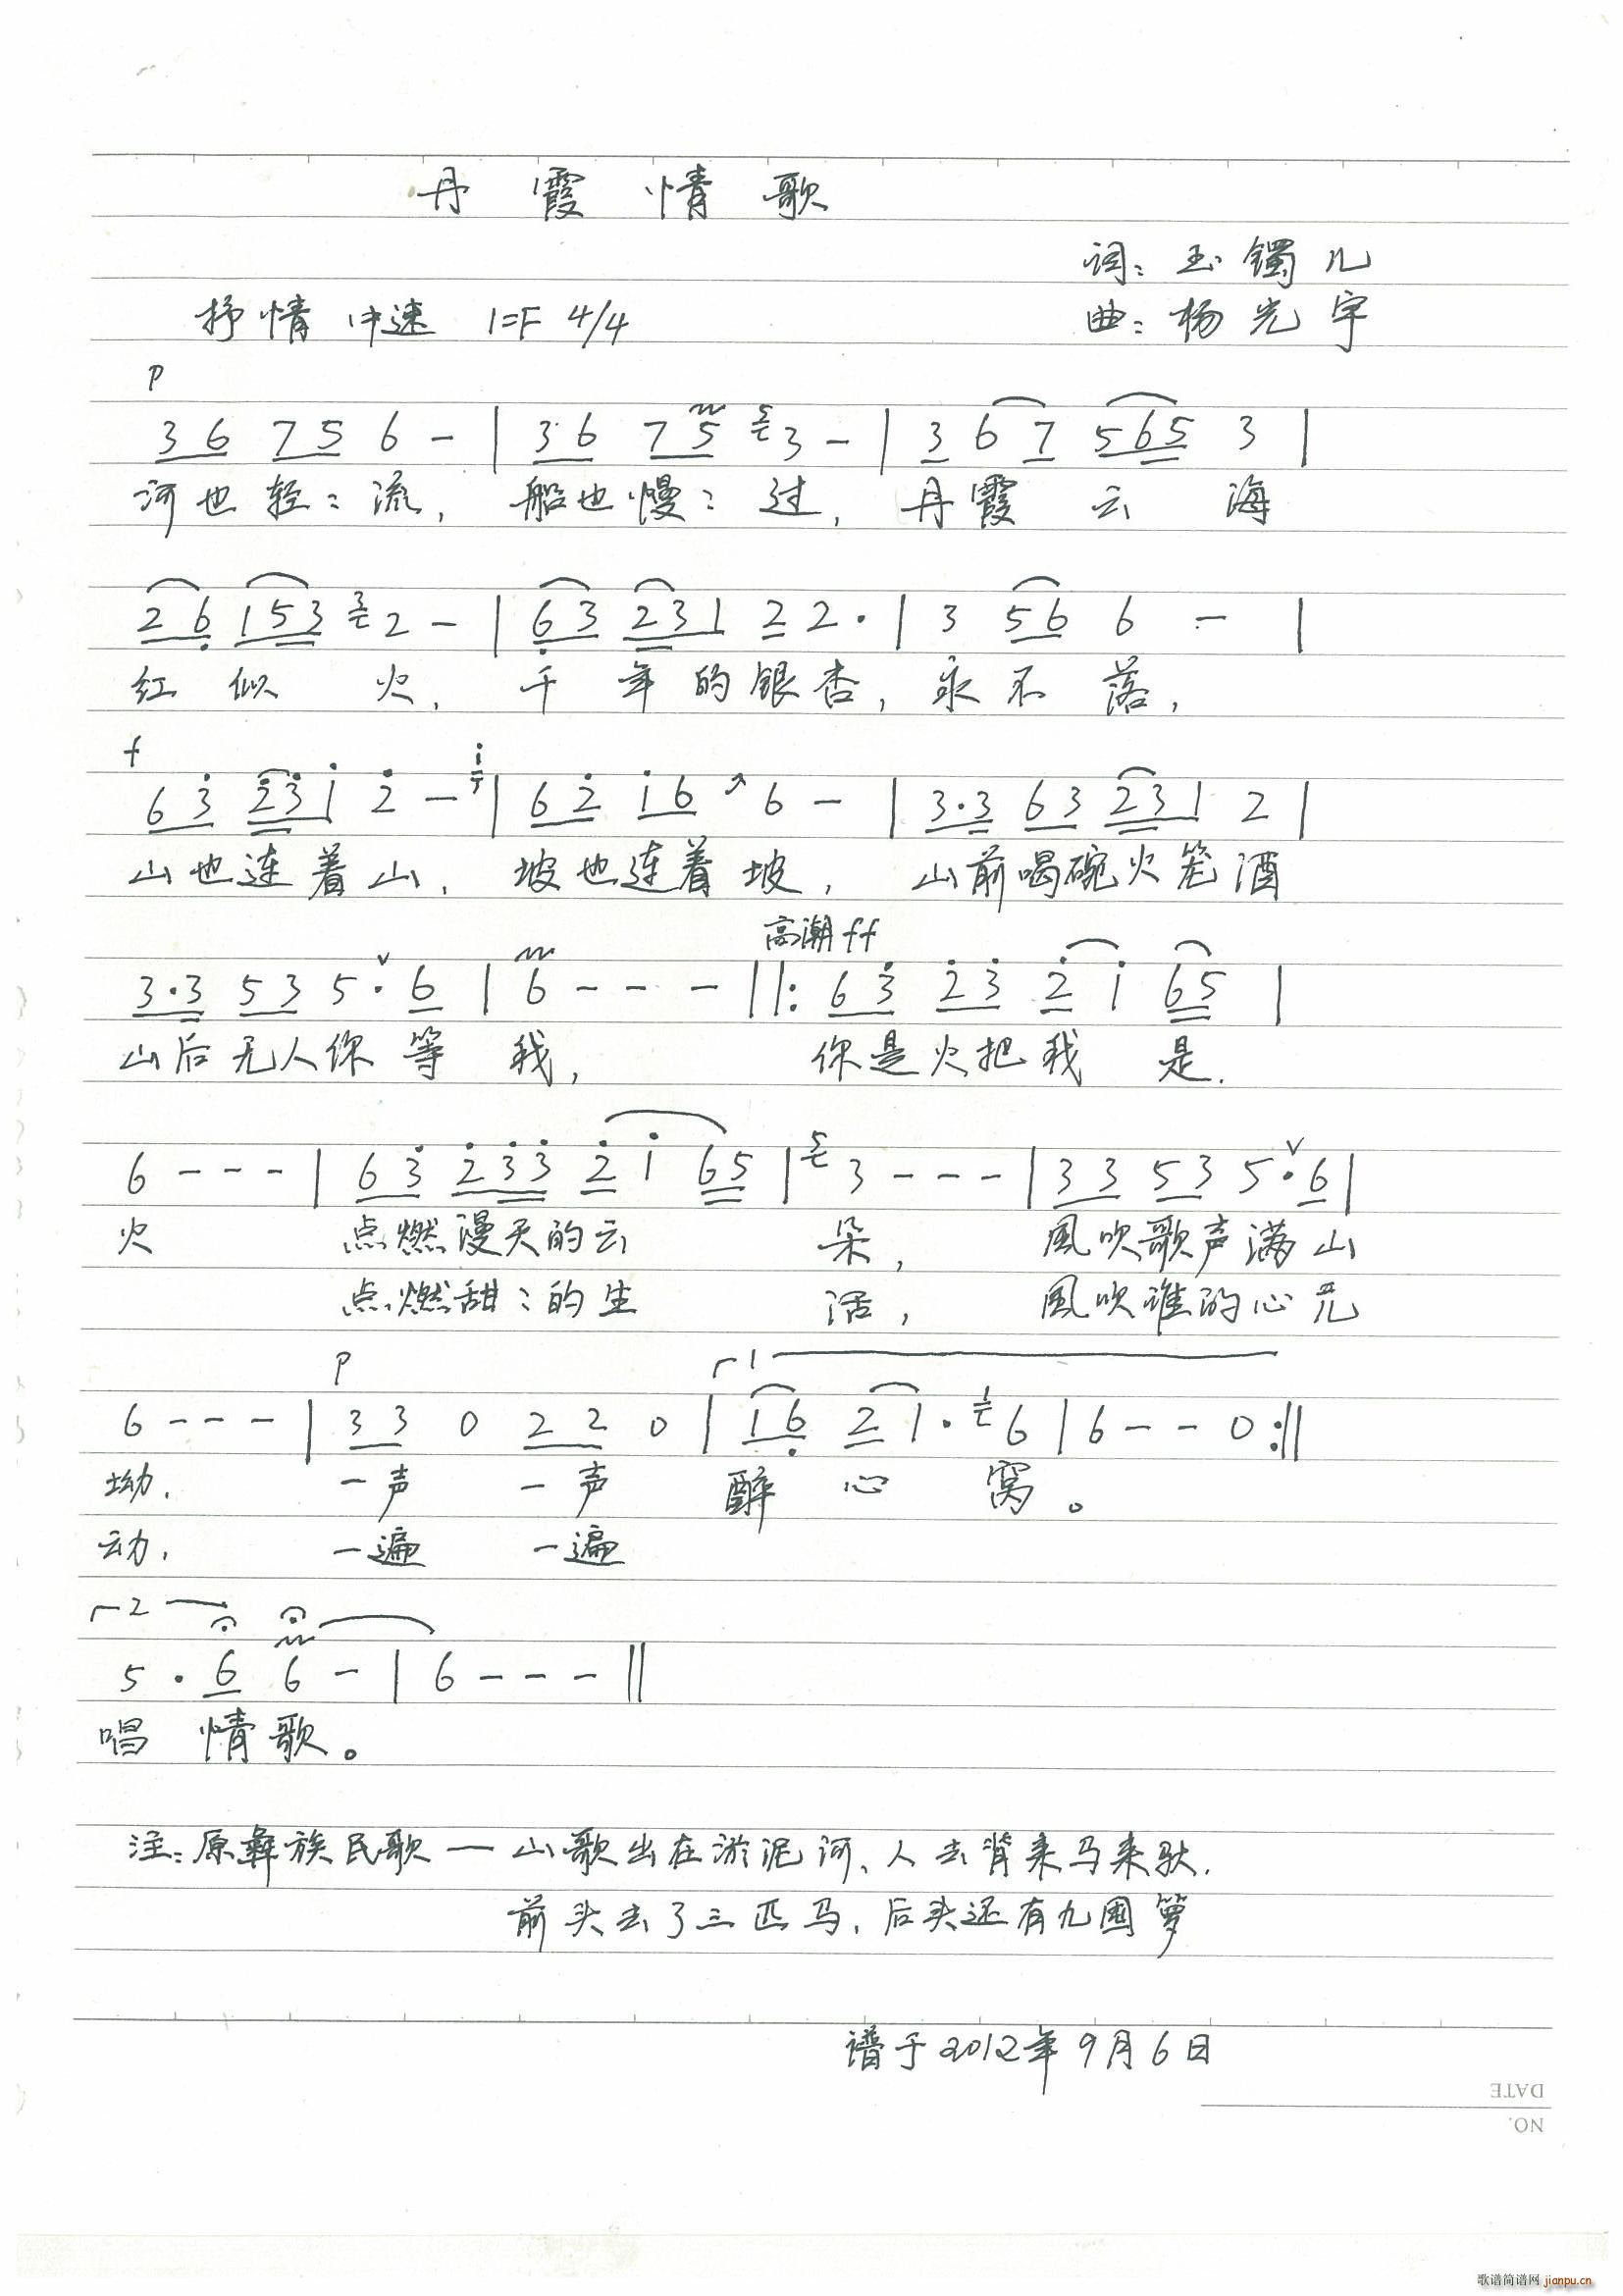 丹霞情歌
词：玉镯儿
抒情 中速 1=F 4/4
曲：杨光宇
p
3 6 7 5 6 - | 3 6 7 5 5 3 - | 3 6 7 5 6 5 3 |
河也轻：流，船也慢：过，丹霞云海
2 6 1 5 3 3 2 - | 6 3 2 3 1 2 2 · | 3 5 6 6 - |
红似火，千年的银杏，永不落，
f
6 3 2 3 1 2 - i | 6 2 1 6 6 - | 3 · 3 6 3 2 3 1 2 |
山也连着山，坡也连着坡，山前喝碗火笼酒
高潮 ff
3 · 3 5 3 5 · 6 | 6 - - - ||: 6 3 2 3 2 1 6 5 |
山后无人你等我，你是火把我是
6 - - - | 6 3 2 3 3 2 1 6 5 | 5 3 - - - | 3 3 5 3 5 · 6 |
火 点燃漫天的云朵，風吹歌声满山
点燃甜：的生活，風吹谁的心儿
p ┌1
6 - - - | 3 3 0 2 2 0 | 1 6 2 1 · 1 6 | 6 - - 0 :||
坳，一声 一声 醉心窝。
动，一遍 一遍
┌2
5 · 6 6 - | 6 - - - ||
唱情歌。
注：原彝族民歌一山歌出在淤泥河、人去背来马来驮，
前头去了三匹马，后头还有九囤箩
谱于2012年9月6日
DATE
NO.
歌谱简谱网 jianpu.cn